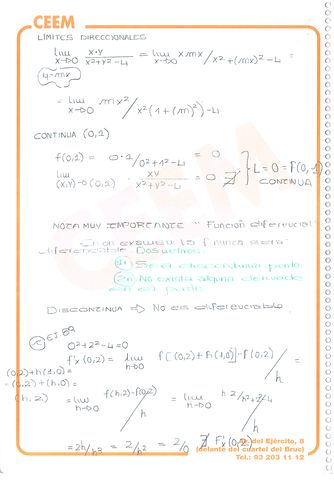 CEEM
LÍMITES DIRECCIONALES
lim x→0 x·y / x²+y²-4 = lim x→0 x·mx / x²+(mx)²-4 =
y=mx
= lim x→0 mx² / x²(1+(m)²)-4
CONTINUA (0,1)
f(0,1) = 0·1/0²+1²-4 = 0
lim (x,y)→(0,1) xy / x²+y²-4 = 0
L=0=f(0,1)
CONTINUA
NOTA MUY IMPORTANTE "Función diferencial"
En un examen la f nunca será
diferenciable Dos motivos:
1) Será discontinua punto
2) No exista alguna derivada
en el punto
DISCONTINUA ⇒ No es diferenciable
c) EJ. 89
0²+2²-4=0
f'x (0,2) = lim h→0 f[(0,2)+h(1,0)]-f(0,2) / h =
(0,2)+h(1,0)=
=(0,2)+(h,0)=
(h,2)
= lim h→0 f(h,2)-f(0,2) / h = lim h→0 h·2/h²+2²-4 / h
= 2h/h³ = 2/h² = 2/0 ∄ f'x(0,2)
del Ejército, 8
(delante del cuartel del Bruc)
Tel.: 93 203 11 12